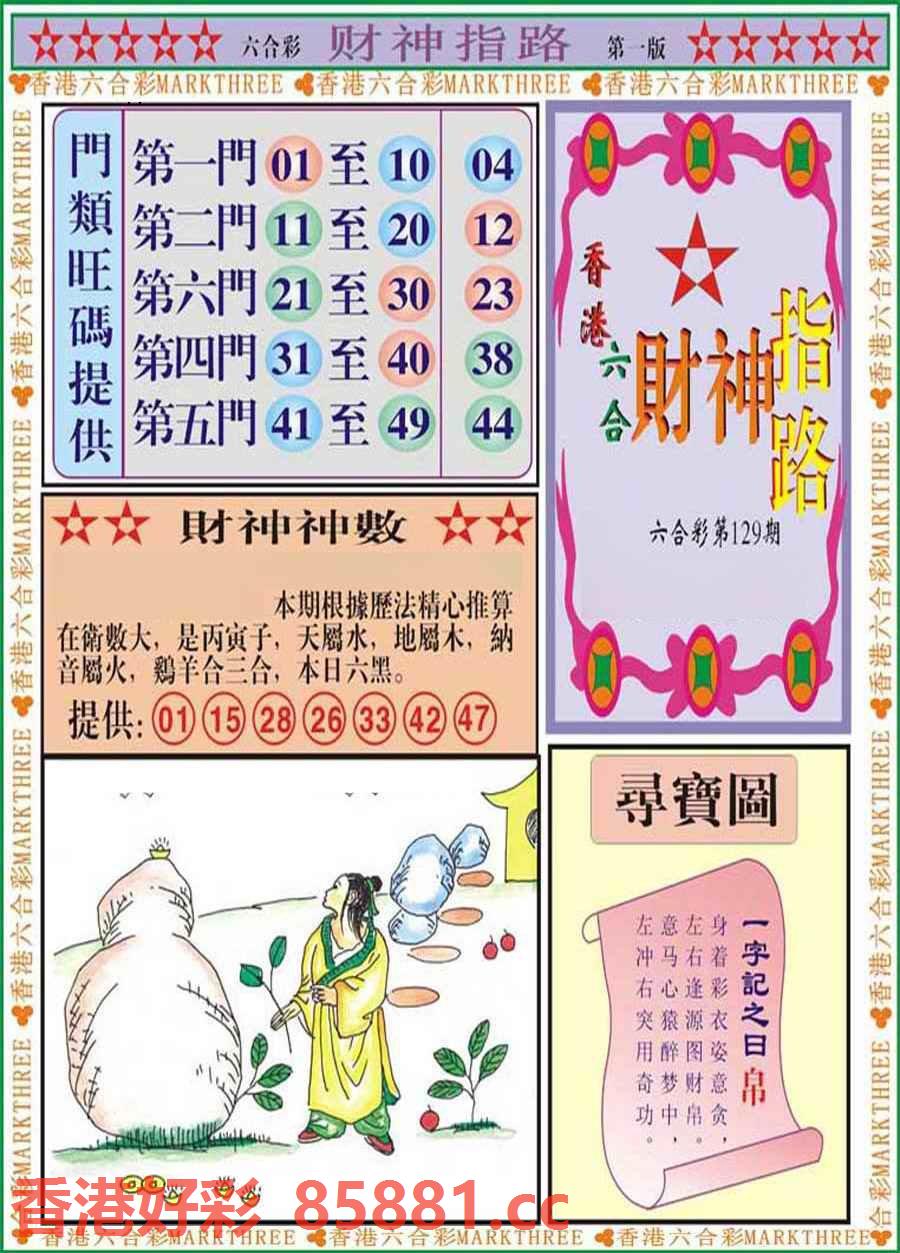 六合彩 财神指路 第一版
香港六合彩MARKTHREE 香港六合彩MARKTHREE 香港六合彩MARKTHREE
門類旺碼提供
第一門 01 至 10 04
第二門 11 至 20 12
第六門 21 至 30 23
第四門 31 至 40 38
第五門 41 至 49 44
香港六合
財神指路
六合彩第129期
財神神數
本期根據歷法精心推算
在衛數大，是丙寅子，天屬水，地屬木，納
音屬火，鷄羊合三合，本日六黑。
提供: 01 15 28 26 33 42 47
尋寶圖
一字記之曰帛
身着彩衣姿意贪，
左右逢源图财帛。
意马心猿醉梦中，
左冲右突用奇功。
香港好彩 85881.cc
香港六合彩MARKTHREE 香港六合彩MARKTHREE 香港六合彩MARKTHREE
香港六合彩MARKTHREE 香港六合彩MARKTHREE 香港六合彩MARKTHREE
香港六合彩MARKTHREE 香港六合彩MARKTHREE 香港六合彩MARKTHREE